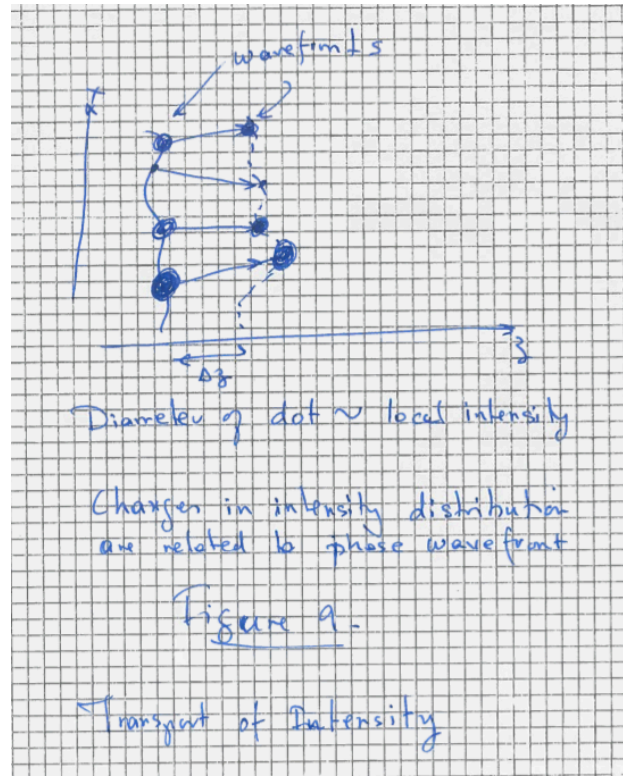 wavefronts
I
z
Δz
Diameter of dot ~ local intensity
Changes in intensity distribution
are related to phase wavefront
Figure 9.
Transport of Intensity